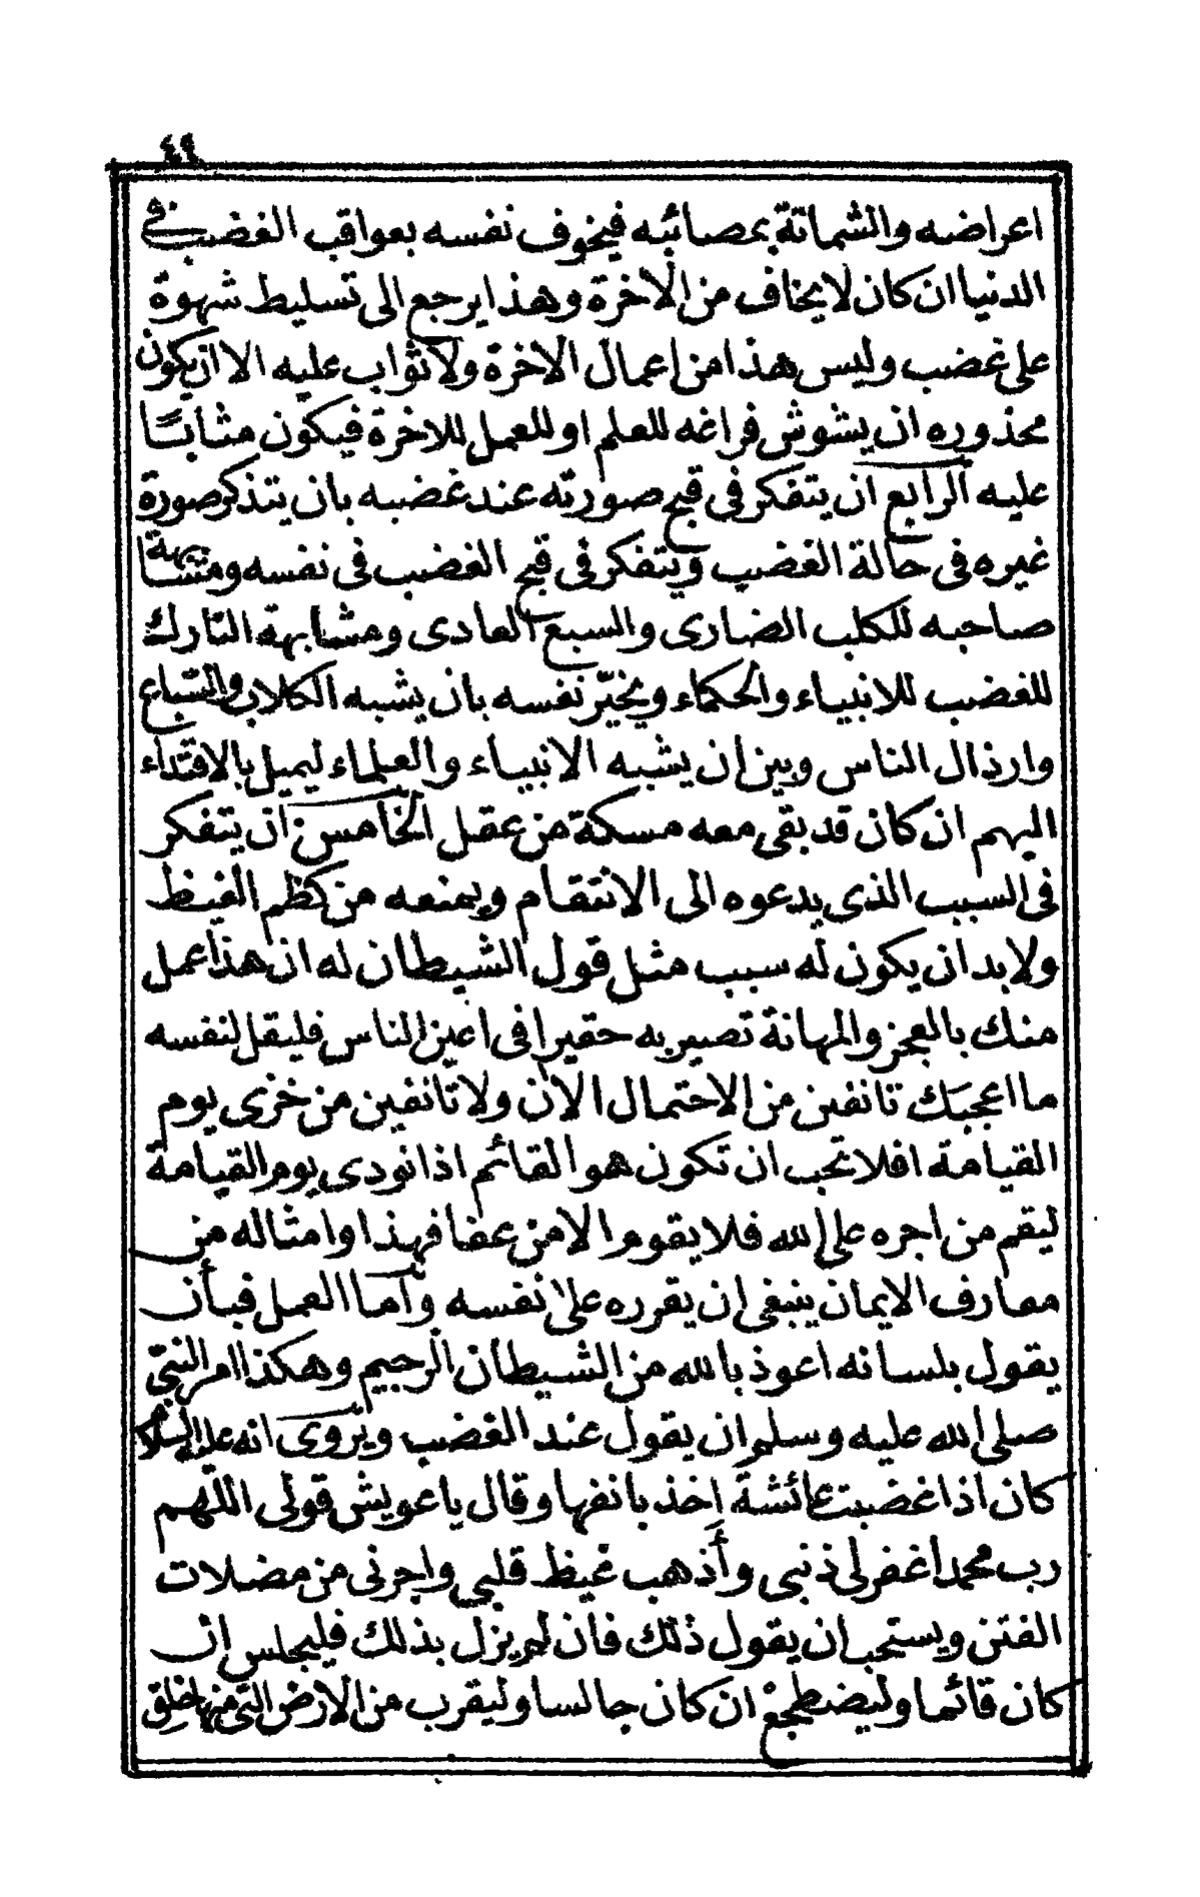 ٤٩
اعراضه والشماتة بمصائبه فيخوف نفسه بعواقب الغضب فى
الدنيا ان كان لا يخاف من الآخرة وهذا يرجع الى تسليط شهوة
على غضب وليس هذا من اعمال الاخرة ولا ثواب عليه الا ان يكون
محذوره ان يشوش فراغه للعلم او للعمل للاخرة فيكون مثابًا
عليه الرابع ان يتفكر فى قبح صورته عند غضبه بان يتذكر صورة
غيره فى حالة الغضب ويتفكر فى قبح الغضب فى نفسه ومشابهة
صاحبه للكلب الضارى والسبع العادى ومشابهة التارك
للغضب للانبياء والحكماء ويخيّر نفسه بان يشبه الكلاب والسباع
وارذال الناس وبين ان يشبه الانبياء والعلماء ليميل بالاقتداء
اليهم ان كان قد بقى معه مسكة من عقل الخامس ان يتفكر
فى السبب الذى يدعوه الى الانتقام ويمنعه من كظم الغيظ
ولا بد ان يكون له سبب مثل قول الشيطان له ان هذا عمل
منك بالعجز والمهانة تصير به حقيرا فى اعين الناس فليقل لنفسه
ما اعجبك تانفين من الاحتمال الآن ولا تانفين من خزى يوم
القيامة افلا تحب ان تكون هو القائم اذا نودى يوم القيامة
ليقم من اجره على الله فلا يقوم الا من عفا فهذا وامثاله من
معارف الايمان ينبغى ان يقرره على نفسه وأما العمل فبأن
يقول بلسانه اعوذ بالله من الشيطان الرجيم وهكذا امر النبيّ
صلى الله عليه وسلم ان يقول عند الغضب ويروى انه عليه السلام
كان اذا غضبت عائشة اخذ بانفها وقال يا عويش قولى اللهم
رب محمد اغفر لى ذنبى وأذهب غيظ قلبى واجرنى من مضلات
الفتن ويستحب ان يقول ذلك فان لم يزل بذلك فليجلس ان
كان قائما وليضطجع ان كان جالسا وليقرب من الارض التى منها خلق